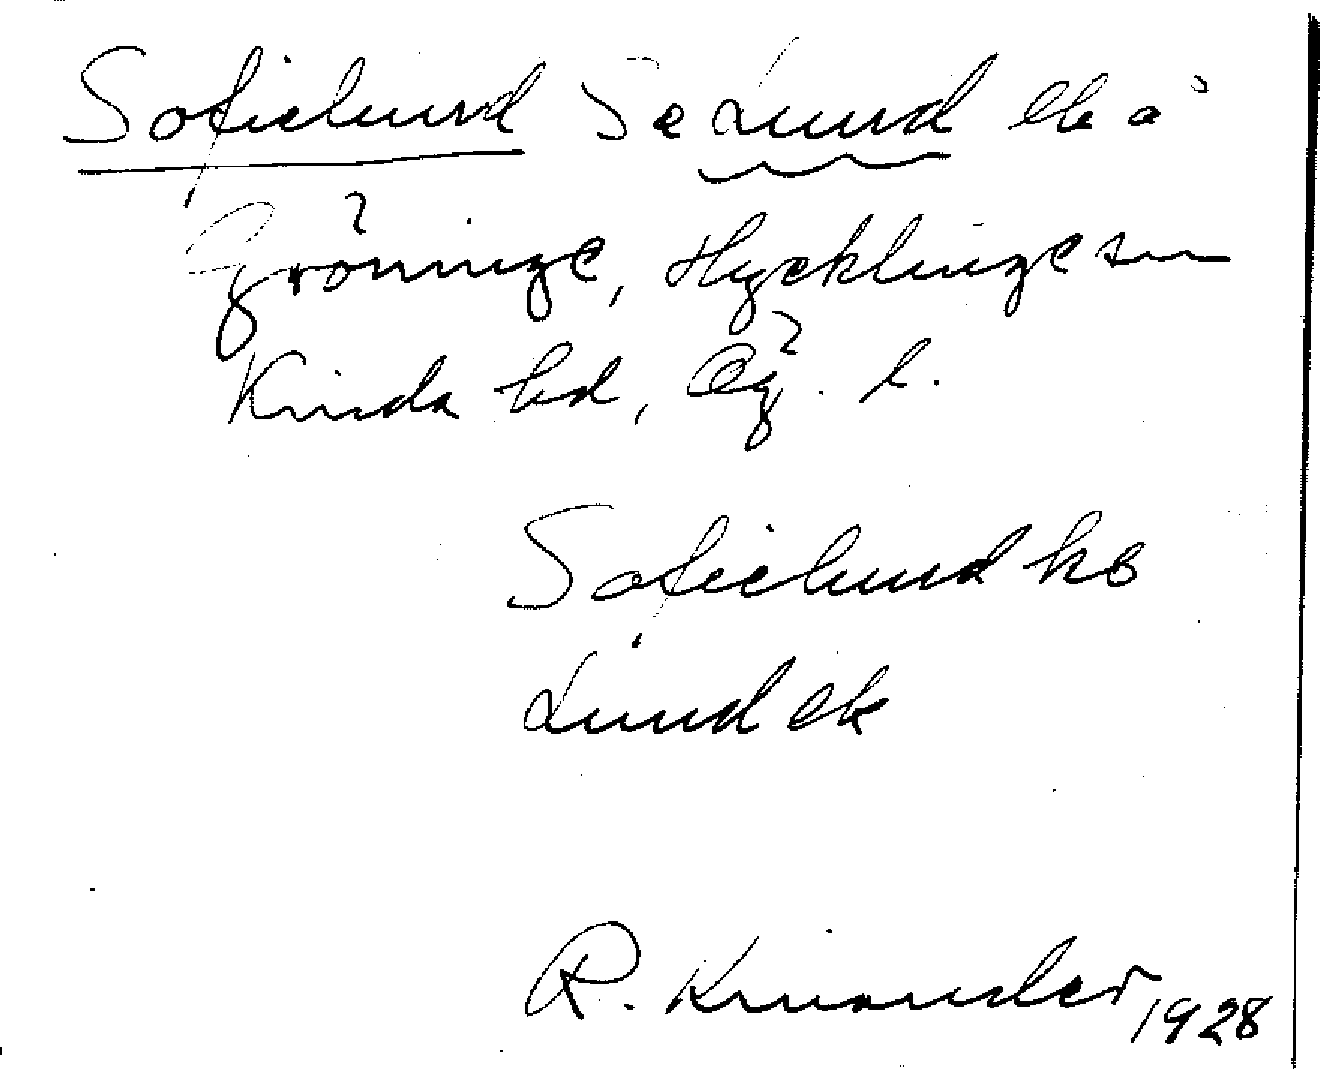 Sofielund Se Lund ek å
Gröninge, Hycklinge sn
Kinda hd, Ög. l.
Sofielund kb
Lund ek
R. Kinander 1928